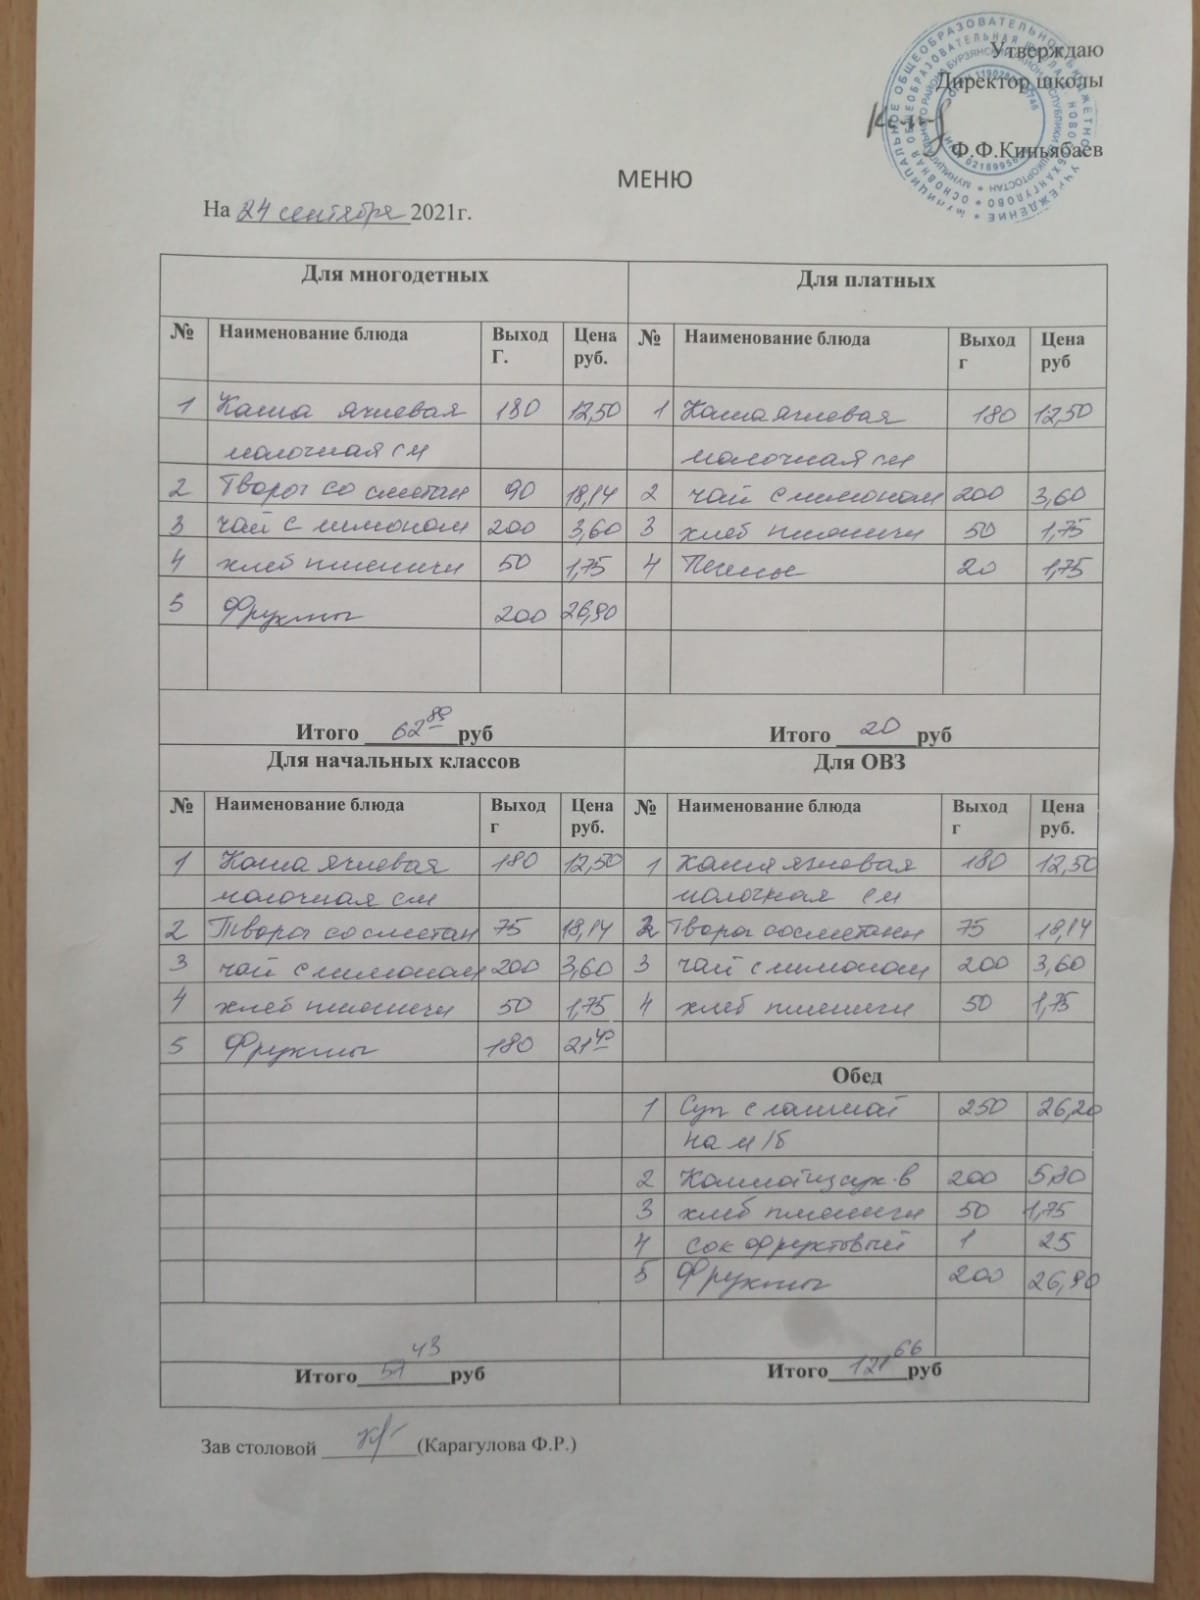 Утверждаю
Директор школы
Ф.Ф.Киньябаев
МЕНЮ
На 24 сентября 2021г.
Для многодетных Для платных
№ Наименование блюда Выход Г. Цена руб. № Наименование блюда Выход г Цена руб
1 Каша ячневая 180 12,50 1 Каша ячневая 180 12,50
молочная см молочная см
2 Творог со сметан 90 18,14 2 чай с лимоном 200 3,60
3 чай с лимоном 200 3,60 3 хлеб пшеничн 50 1,75
4 хлеб пшеничн 50 1,75 4 Печенье 20 1,75
5 Фрукты 200 26,90
Итого 62 89 руб Итого 20 руб
Для начальных классов Для ОВЗ
№ Наименование блюда Выход г Цена руб. № Наименование блюда Выход г Цена руб.
1 Каша ячневая 180 12,50 1 Каша ячневая 180 12,50
молочная см молочная см
2 Творог со сметан 75 18,14 2 Творог со сметаны 75 18,14
3 чай с лимоном 200 3,60 3 чай с лимоном 200 3,60
4 хлеб пшеничн 50 1,75 4 хлеб пшеничн 50 1,75
5 Фрукты 180 21 40
Обед
1 Суп с лапшой 250 26,20
на м/б
2 Компот из сух. в 200 5,80
3 хлеб пшеничн 50 1,75
4 сок фруктовый 1 25
5 Фрукты 200 26,90
Итого 57 43 руб Итого 121 66 руб
Зав столовой (Карагулова Ф.Р.)